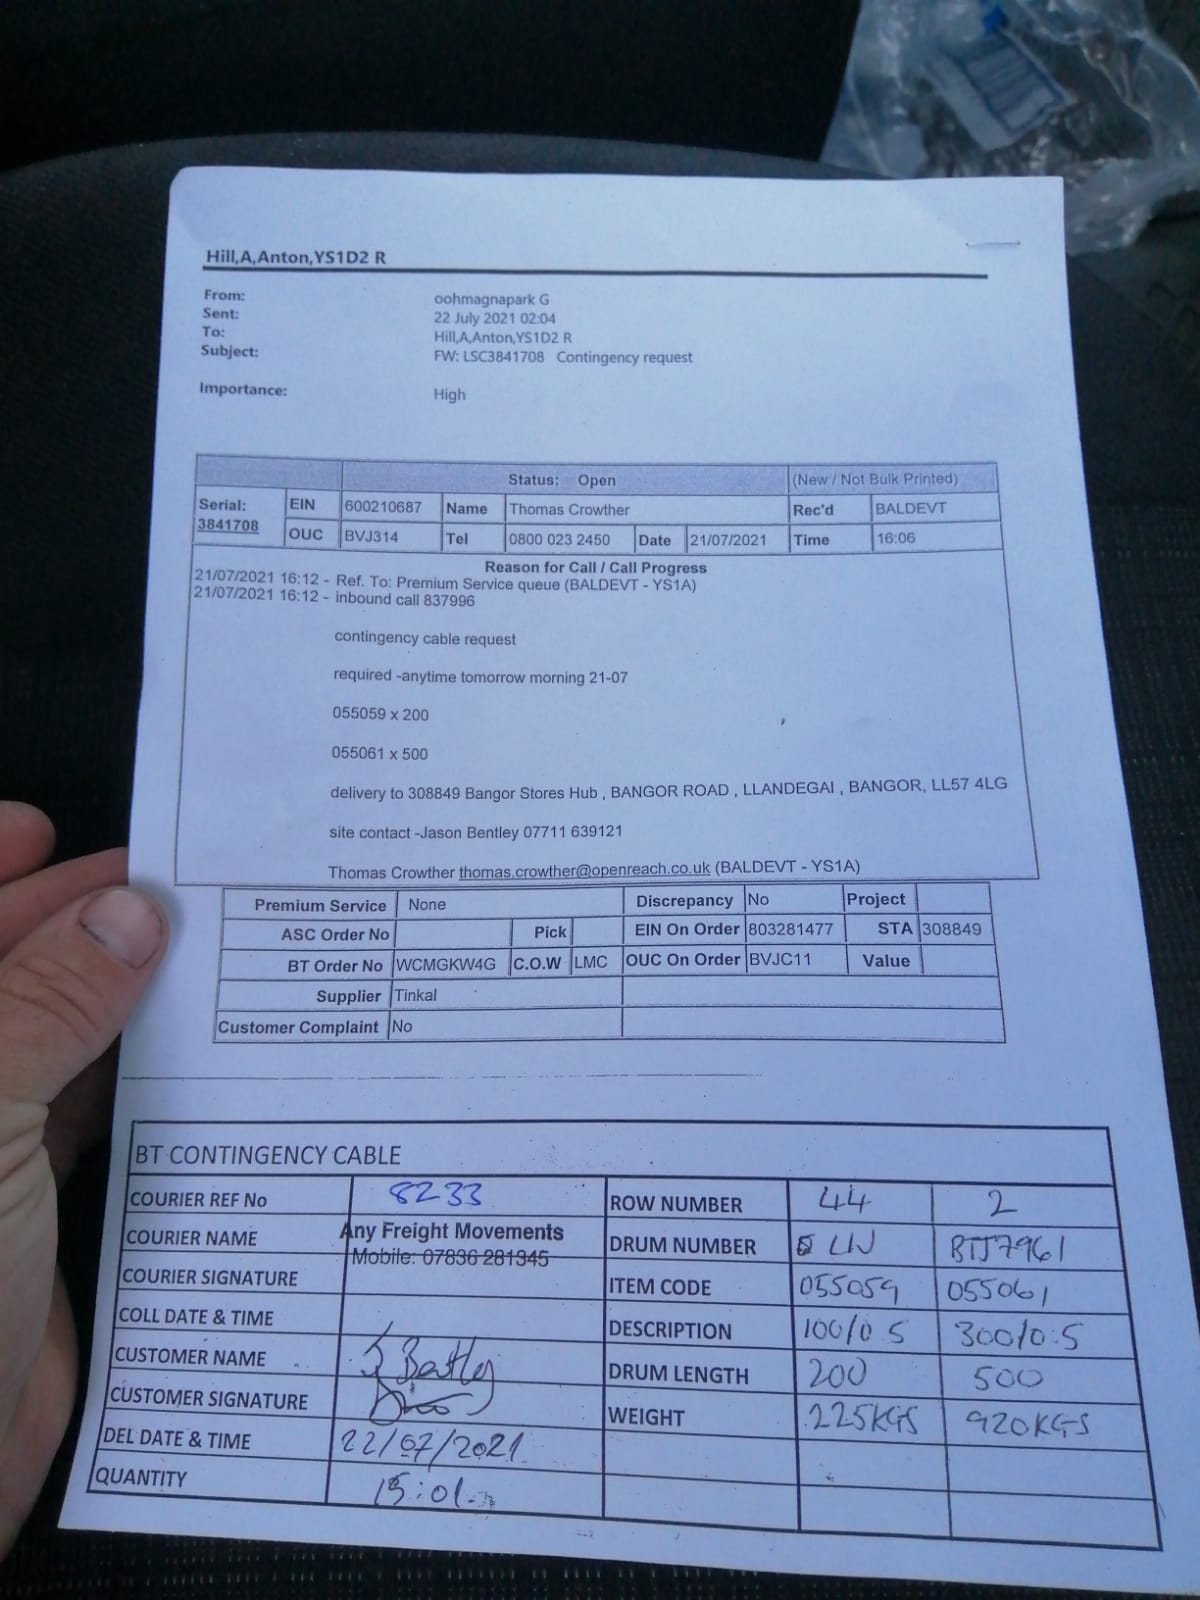 Hill,A,Anton,YS1D2 R
From: oohmagnapark G
Sent: 22 July 2021 02:04
To: Hill,A,Anton,YS1D2 R
Subject: FW: LSC3841708 Contingency request
Importance: High
Status: Open (New / Not Bulk Printed)
Serial: 3841708 EIN 600210687 Name Thomas Crowther Rec'd BALDEVT
OUC BVJ314 Tel 0800 023 2450 Date 21/07/2021 Time 16:06
Reason for Call / Call Progress
21/07/2021 16:12 - Ref. To: Premium Service queue (BALDEVT - YS1A)
21/07/2021 16:12 - inbound call 837996
contingency cable request
required -anytime tomorrow morning 21-07
055059 x 200
055061 x 500
delivery to 308849 Bangor Stores Hub , BANGOR ROAD , LLANDEGAI , BANGOR, LL57 4LG
site contact -Jason Bentley 07711 639121
Thomas Crowther thomas.crowther@openreach.co.uk (BALDEVT - YS1A)
Premium Service None Discrepancy No Project
ASC Order No Pick EIN On Order 803281477 STA 308849
BT Order No WCMGKW4G C.O.W LMC OUC On Order BVJC11 Value
Supplier Tinkal
Customer Complaint No
BT CONTINGENCY CABLE
COURIER REF No 8233 ROW NUMBER 44 2
COURIER NAME Any Freight Movements DRUM NUMBER LW BTJ7961
Mobile: 07836 281345
COURIER SIGNATURE ITEM CODE 055059 055061
COLL DATE & TIME DESCRIPTION 100/0.5 300/0.5
CUSTOMER NAME J Bentley DRUM LENGTH 200 500
CUSTOMER SIGNATURE WEIGHT 225KGS 920KGS
DEL DATE & TIME 22/07/2021
QUANTITY 15:01